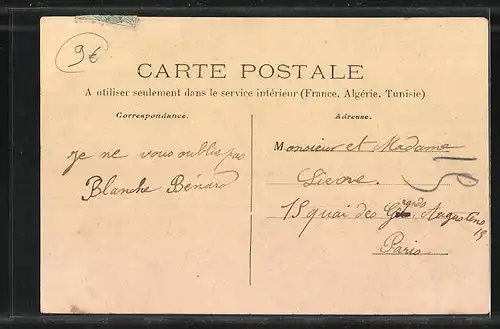 9€
CARTE POSTALE
A utiliser seulement dans le service intérieur (France, Algérie, Tunisie)
Correspondance.
Adresse.
je ne vous oublie pas
Blanche Bénard
Monsieur et Madame
Lievre.
15 quai des Grands Augustins
15
Paris